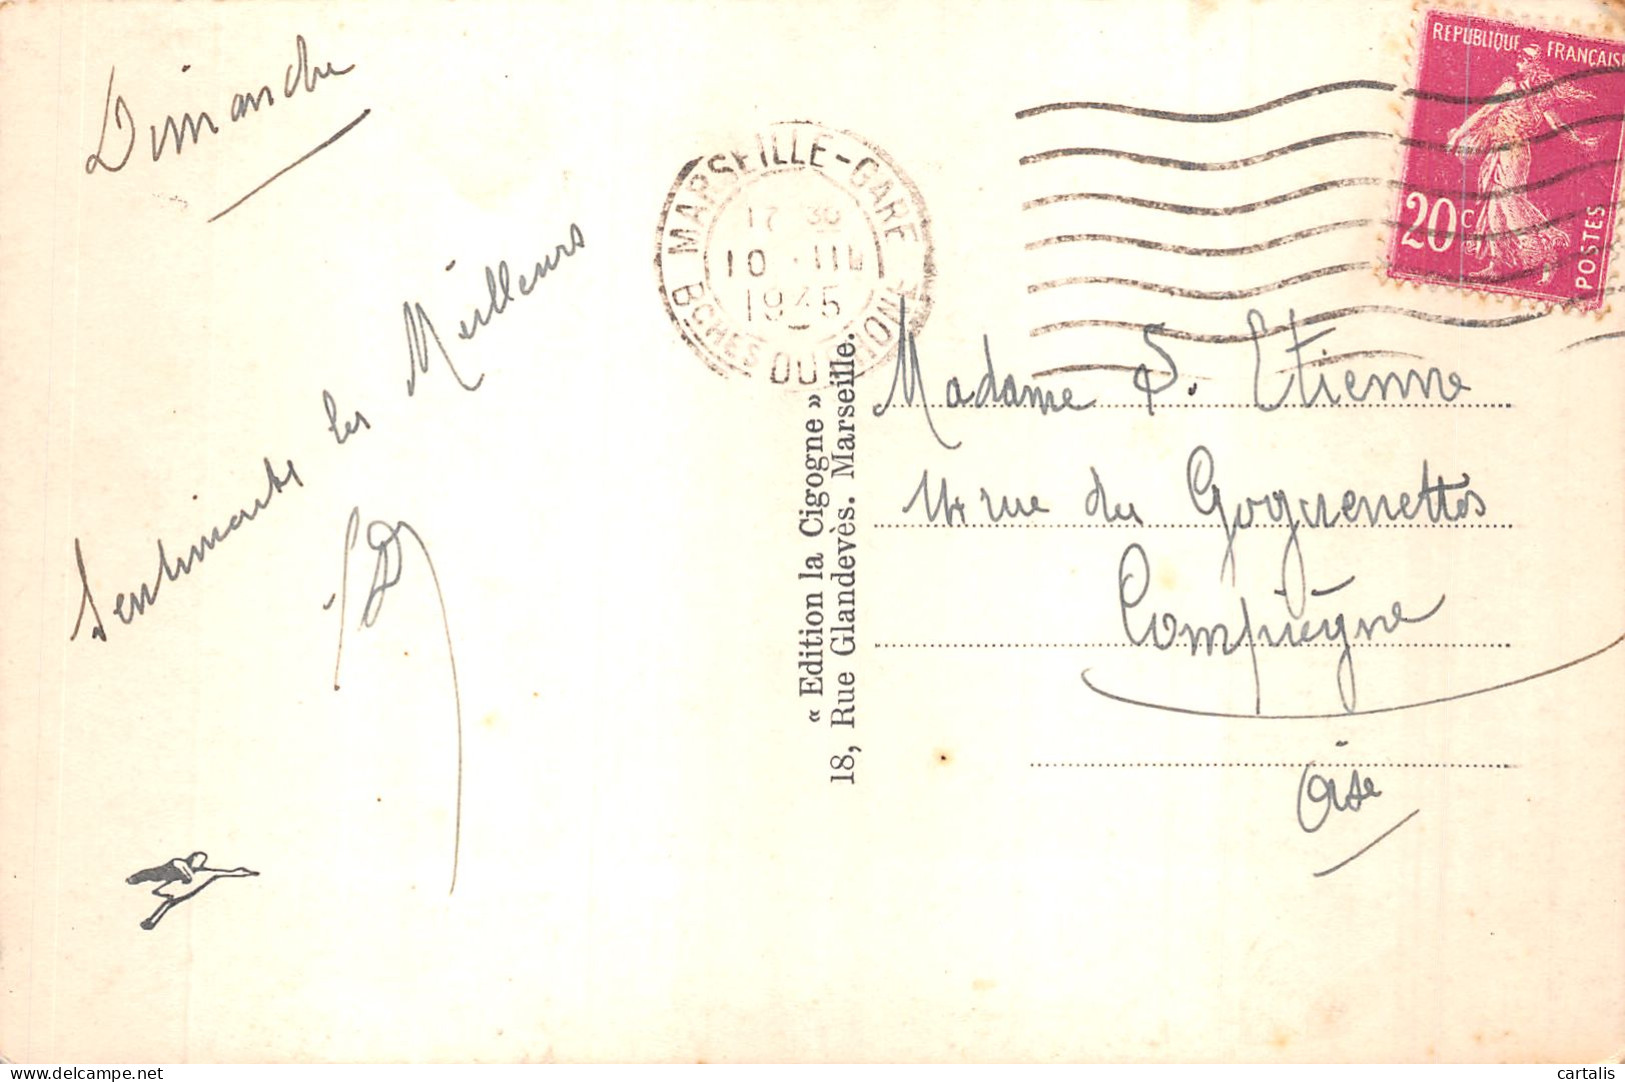 Dimanche
Sentiments les Meilleurs
MARSEILLE-GARE
17 30
10 III
1945
BCHES DU RHONE
REPUBLIQUE FRANÇAISE
20c
POSTES
« Edition la Cigogne »
18, Rue Glandevès. Marseille.
Madame S. Etienne
14 rue du
Compiègne
Oise
cartalis
delcampe.net